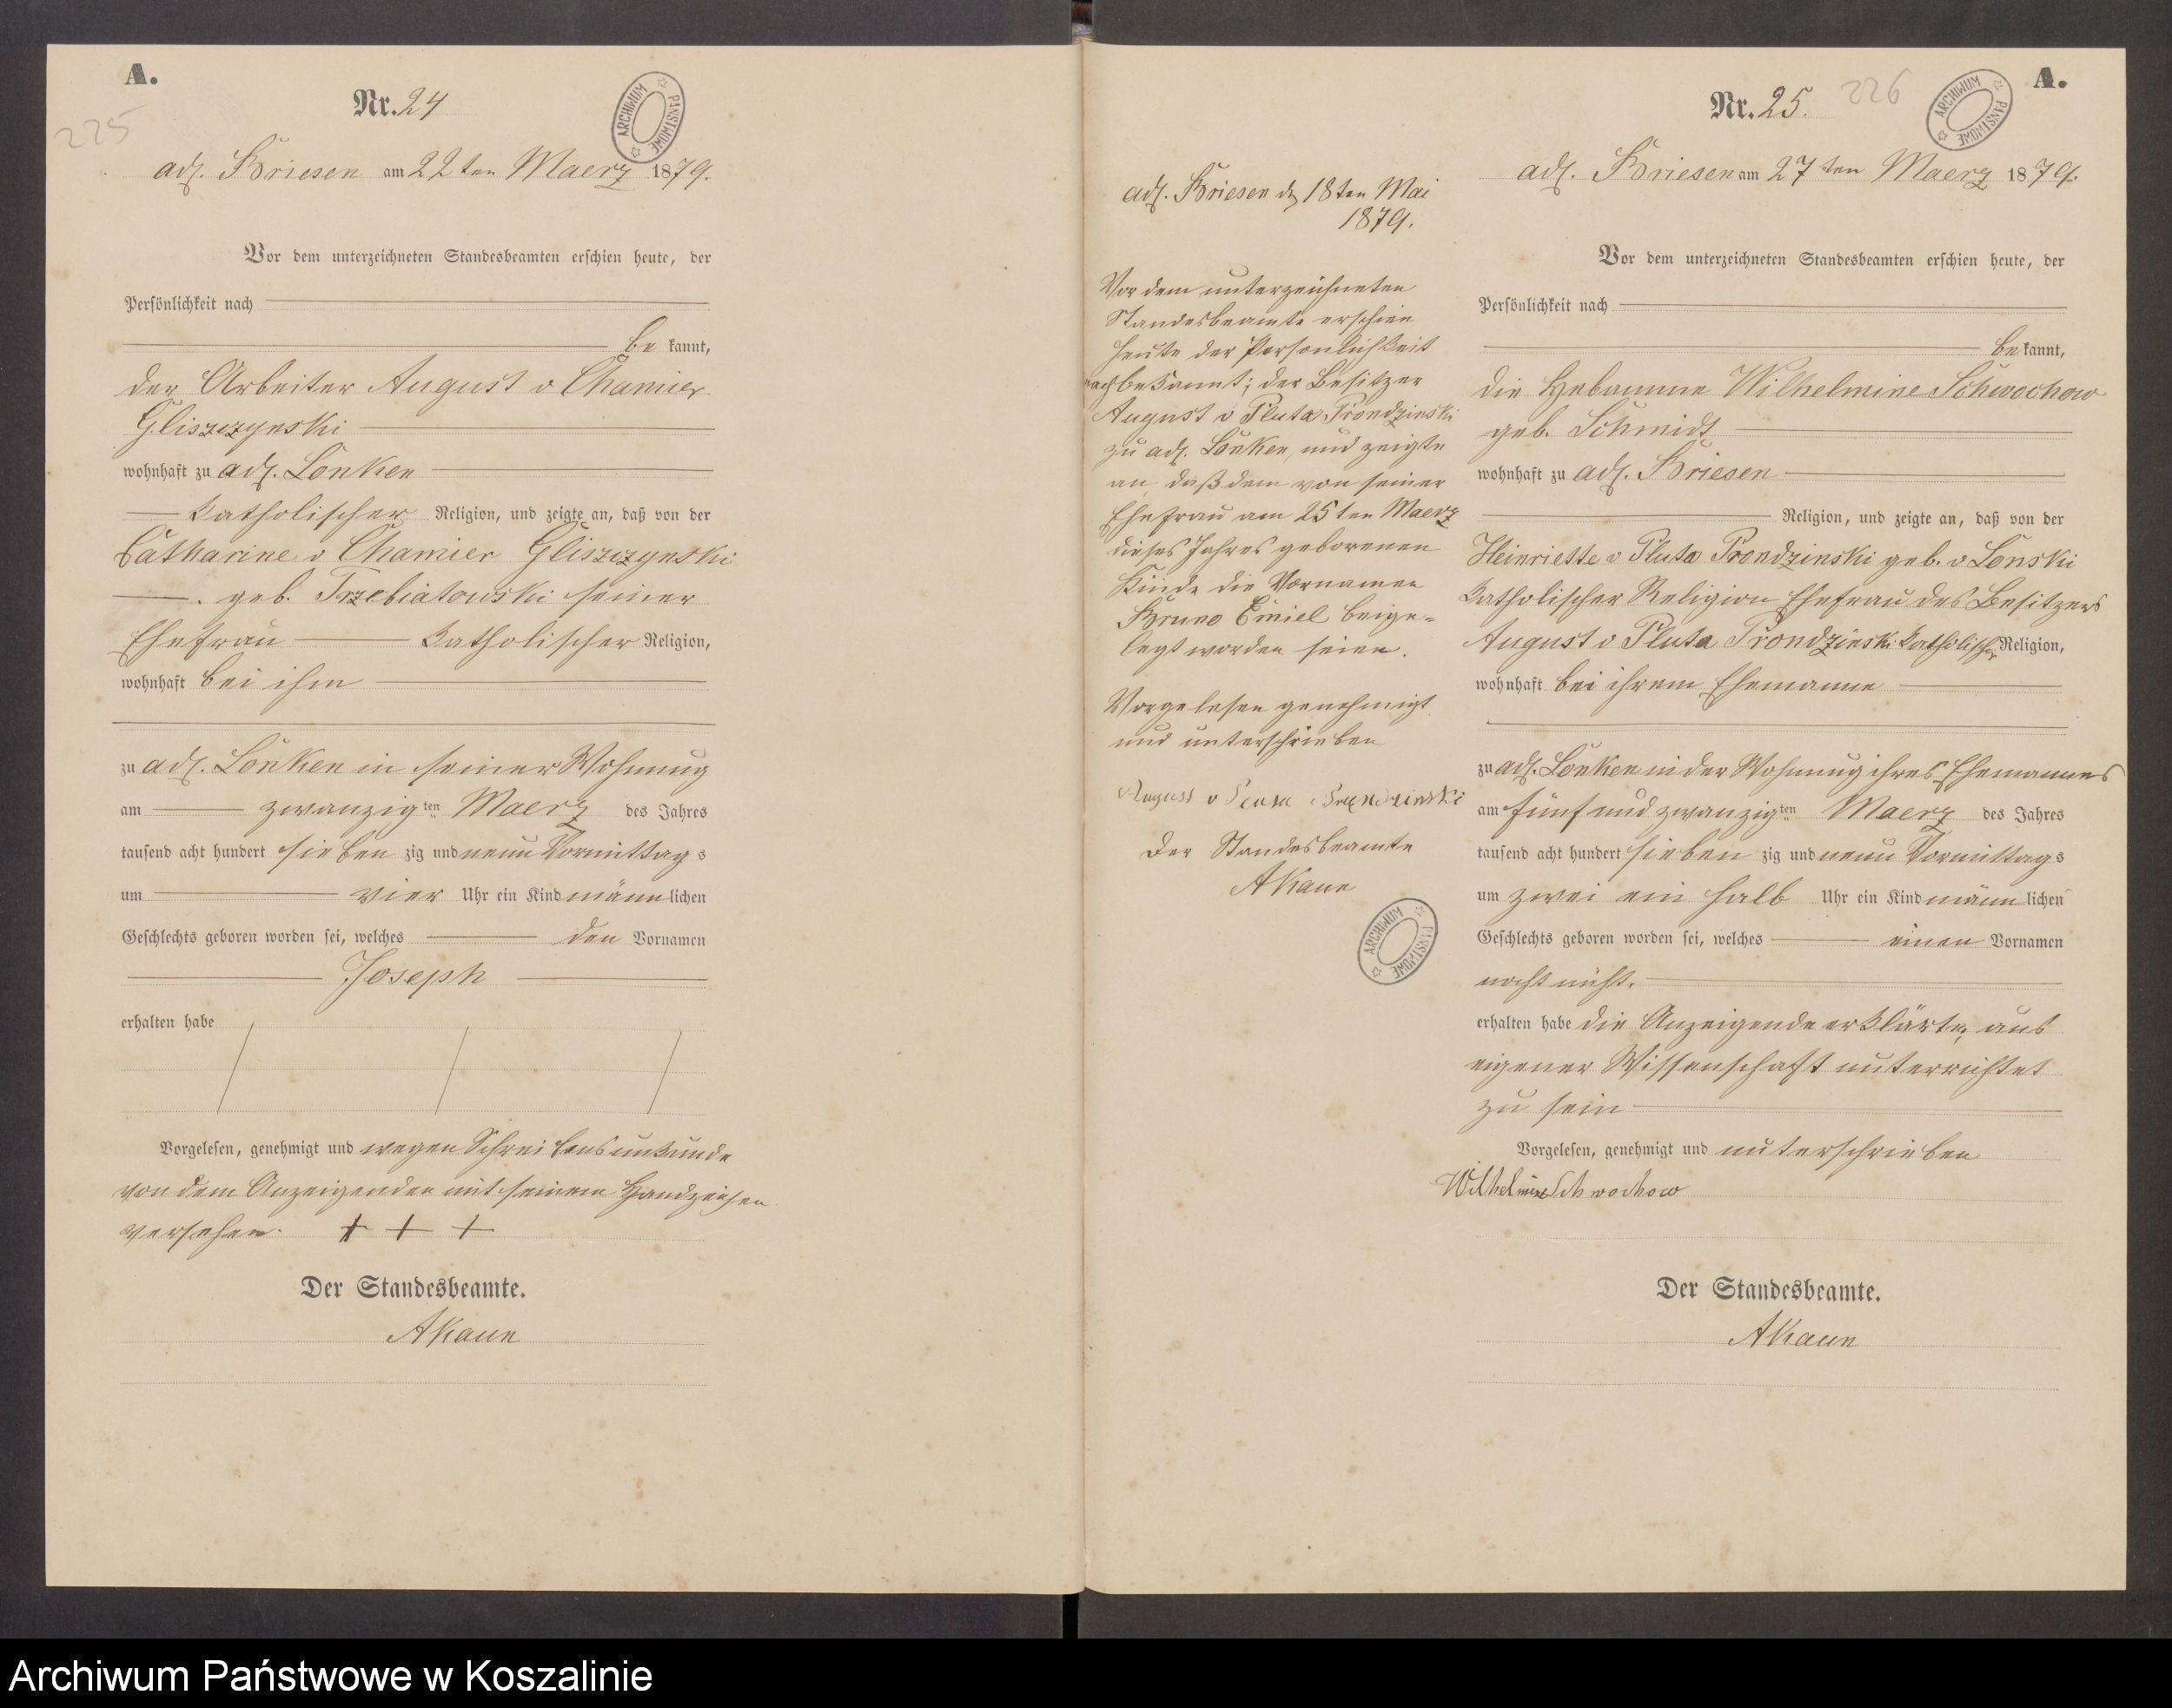 A.
Nr. 24
225
ARCHIWUM PAŃSTWOWE
adl. Briesen am 22ten Maerz 1879.
Vor dem unterzeichneten Standesbeamten erschien heute, der
Persönlichkeit nach
be kannt,
der Arbeiter August v Chamier
Gliszczynski
wohnhaft zu adl. Lonken
katholischer Religion, und zeigte an, daß von der
Catharine v Chamier Gliszczynski
geb. Trzebiatowski seiner
Ehefrau katholischer Religion,
wohnhaft bei ihm
zu adl. Lonken in seiner Wohnung
am zwanzig ten Maerz des Jahres
tausend acht hundert sieben zig und neun Vormittags
um vier Uhr ein Kind männlichen
Geschlechts geboren worden sei, welches den Vornamen
Joseph
erhalten habe
Vorgelesen, genehmigt und wegen Schreibensunkunde
von dem Anzeigenden mit seinem Handzeichen
versehen. + + +
Der Standesbeamte.
AKaun
adl. Briesen d 18ten Mai
1879.
Vor dem unterzeichneten
Standesbeamte erschien
heute der Persönlichkeit
nach bekannt; der Besitzer
August v Pluta Prondzinski
zu adl. Lonken, und zeigte
an daß dem von seiner
Ehefrau am 25ten Maerz
dieses Jahres geborenen
Kinde die Vornamen
Bruno Emiel beige=
legt worden seien.
Vorgelesen genehmigt
und unterschrieben
August v Pluta Prondzinski
Der Standesbeamte
AKaun
ARCHIWUM PAŃSTWOWE
A.
Nr. 25.
226
ARCHIWUM PAŃSTWOWE
adl. Briesen am 27ten Maerz 1879.
Vor dem unterzeichneten Standesbeamten erschien heute, der
Persönlichkeit nach
be kannt,
die Hebamme Wilhelmine Schwochow
geb. Schmidt
wohnhaft zu adl. Briesen
Religion, und zeigte an, daß von der
Heinriette v Pluta Prondzinski geb. v Lonski
katholischer Religion Ehefrau des Besitzers
August v Pluta Prondzinski katholischer Religion,
wohnhaft bei ihrem Ehemanne
zu adl. Lonken in der Wohnung ihres Ehemannes
am fünf und zwanzig ten Maerz des Jahres
tausend acht hundert sieben zig und neun Vormittags
um zwei ein halb Uhr ein Kind männlichen
Geschlechts geboren worden sei, welches einen Vornamen
noch nicht.
erhalten habe die Anzeigende erklärte, aus
eigener Wissenschaft unterrichtet
zu sein
Vorgelesen, genehmigt und unterschrieben
Wilhelmine Schwochow
Der Standesbeamte.
AKaun
Archiwum Państwowe w Koszalinie